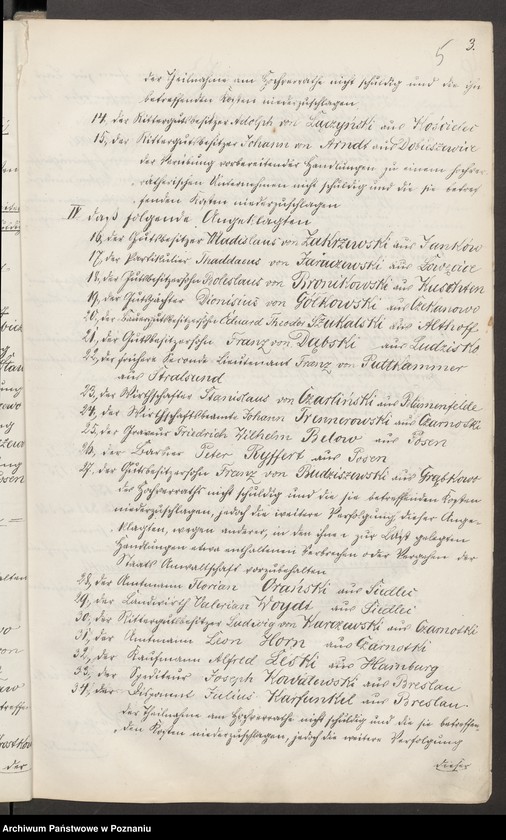 5 3.
der Theilnahme am Hochverrathe nicht schuldig und die ihn
betreffenden Kosten niederzuschlagen
14, der Rittergutsbesitzer Adolph von Łączyński aus Kościelec
15, der Rittergutsbesitzer Johann von Arndt aus Dobieszewice
der Verübung vorbereitender Handlungen zu einem hochver-
rätherischen Unternehmen nicht schuldig und die sie betref
fenden Kosten niederzuschlagen
IV daß folgende Angeklagten
16, der Gutsbesitzer Wladislaus von Zakrzewski aus
17, der Partikulier Thaddaeus von Jaraczewski aus Łowęcice
18, der Gutsbesitzersohn Boleslaus von Bronikowski aus Kuschten
19, der Gutspächter Dionisius von Golkowski aus Czekanowo
20, der Bauergutsbesitzersohn Eduard Theodor Szukalski aus Althoff
21, der Gutsbesitzersohn Franz von Dąbski aus Ludzisko
22, der frühere Seconde Lieutenant Franz von Puttkammer
aus Stralsund
23, der Wirthschafter Stanislaus von Czarliński aus Blumenfelde
24, der Wirthschaftsbeamte Johann Trennerowski aus Czarnotki
25, der Graveur Friedrich Wilhelm Below aus Posen
26, der Barbier Peter Kyffert aus Posen
27, der Gutsbesitzersohn Franz von Budziszewski aus Grąbkowo
des Hochverraths nicht schuldig und die sie betreffenden Kosten
niederzuschlagen, jedoch die weitere Verfolgung dieser Ange-
klagten, wegen anderer, in den ihnen zur Last gelegten
Handlungen etwa enthaltenen Verbrechen oder Vergehen der
Staats Anwaltschaft vorzubehalten
28, der Amtmann Florian Grański aus Siedlec
29, der Landwirth Valerian Woydt aus Siedlec
30, der Rittergutsbesitzer Ludwig von Karczewski aus Czarnotki
31, der Amtmann Leon Horn aus Czarnotki
32, der Kaufmann Alfred Leski aus Hamburg
33, der Spediteur Joseph Kowalewski aus Breslau
34, der Disponent Julius Karfunkel aus Breslau
der Theilnahme am Hochverrathe nicht schuldig und die sie betreffen
den Kosten niederzuschlagen, jedoch die weitere Verfolgung
dieser
Archiwum Państwowe w Poznaniu